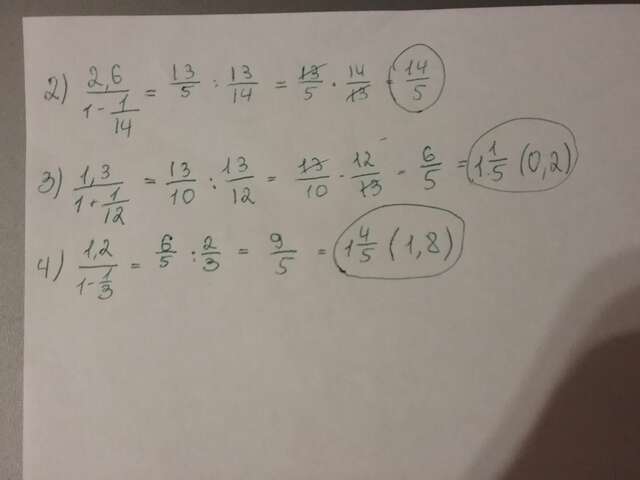 2) 2,6/(1-1/14) = 13/5 : 13/14 = 13/5 · 14/13 = 14/5
3) 1,3/(1+1/12) = 13/10 : 13/12 = 13/10 · 12/13 = 6/5 = 1 1/5 (0,2)
4) 1,2/(1-1/3) = 6/5 : 2/3 = 9/5 = 1 4/5 (1,8)